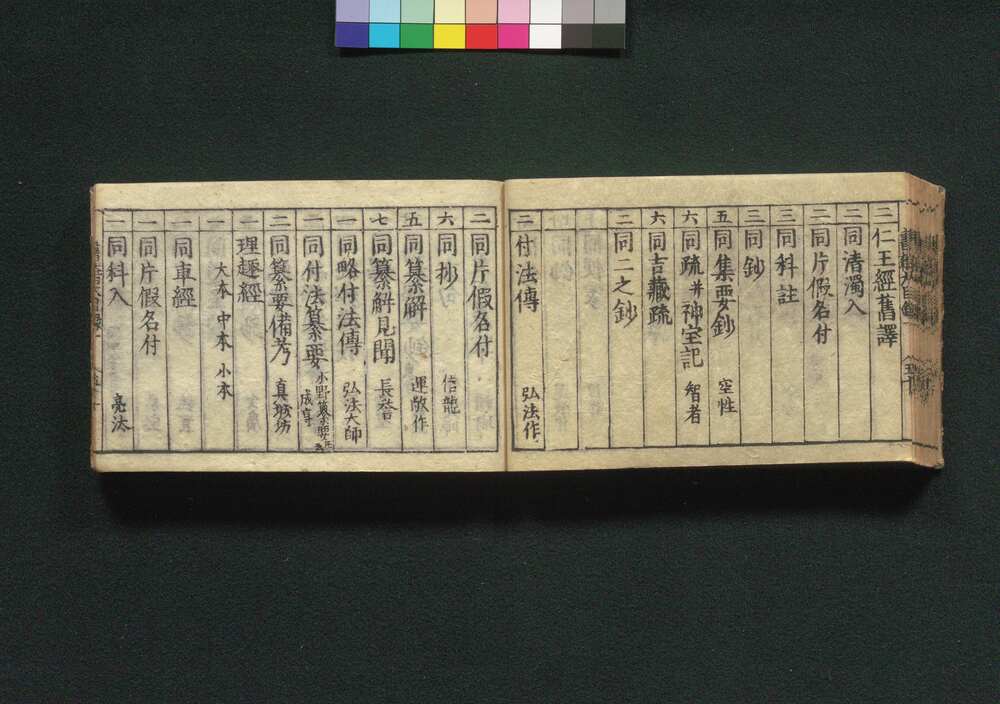 二 仁王經舊譯
二 同清濁入
二 同片假名付
三 同科註
三 同鈔
五 同集要鈔 空性
六 同疏并神宝記 智者
六 同吉藏疏
二 同二之鈔
二 付法傳 弘法作
二 同片假名付
六 同抄 信龍
五 同纂解 運敞作
七 同纂解見聞 長誉
一 同略付法傳 弘法大師
一 同付法纂要 小野纂要 成尊
二 同纂要備考 真城坊
理趣經
一 大本 中本 小本
一 同車經
一 同片假名付
一 同科入 亮汰